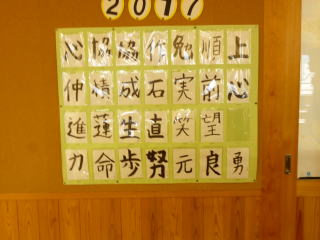 2017
心 協 協 作 勉 順 上
仲 積 成 石 実 前 心
進 蓮 生 直 笑 望
力 命 歩 努 元 良 勇